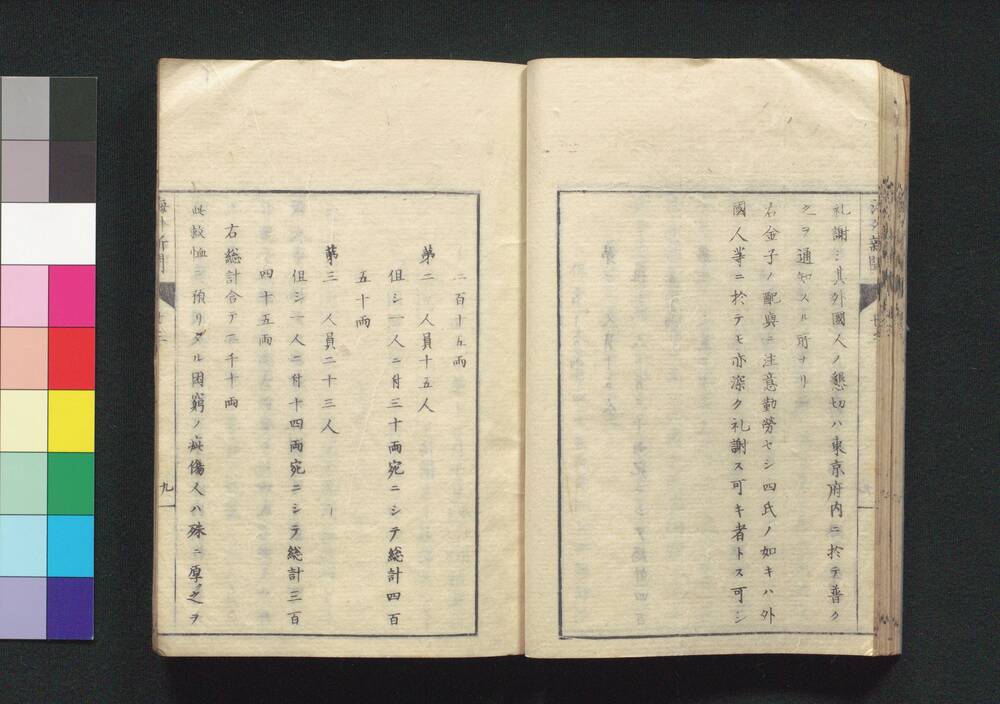 海外新聞
礼謝シ其外國人ノ懇切ハ東京府内ニ於テ普ク
之ヲ通知スル所ナリ
右金子ノ配與ニ注意勤勞セシ四氏ノ如キハ外
國人等ニ於テモ亦深ク礼謝ス可キ者トス可シ
二百十五両
第二 人員十五人
但シ一人ニ付三十両宛ニシテ総計四百
五十両
第三 人員二十三人
但シ一人ニ付十四両宛ニシテ総計三百
四十五両
右総計合テ一千十両
此救恤ニ預リタル困窮ノ疵傷人ハ殊ニ厚ク之ヲ
海外新聞
九